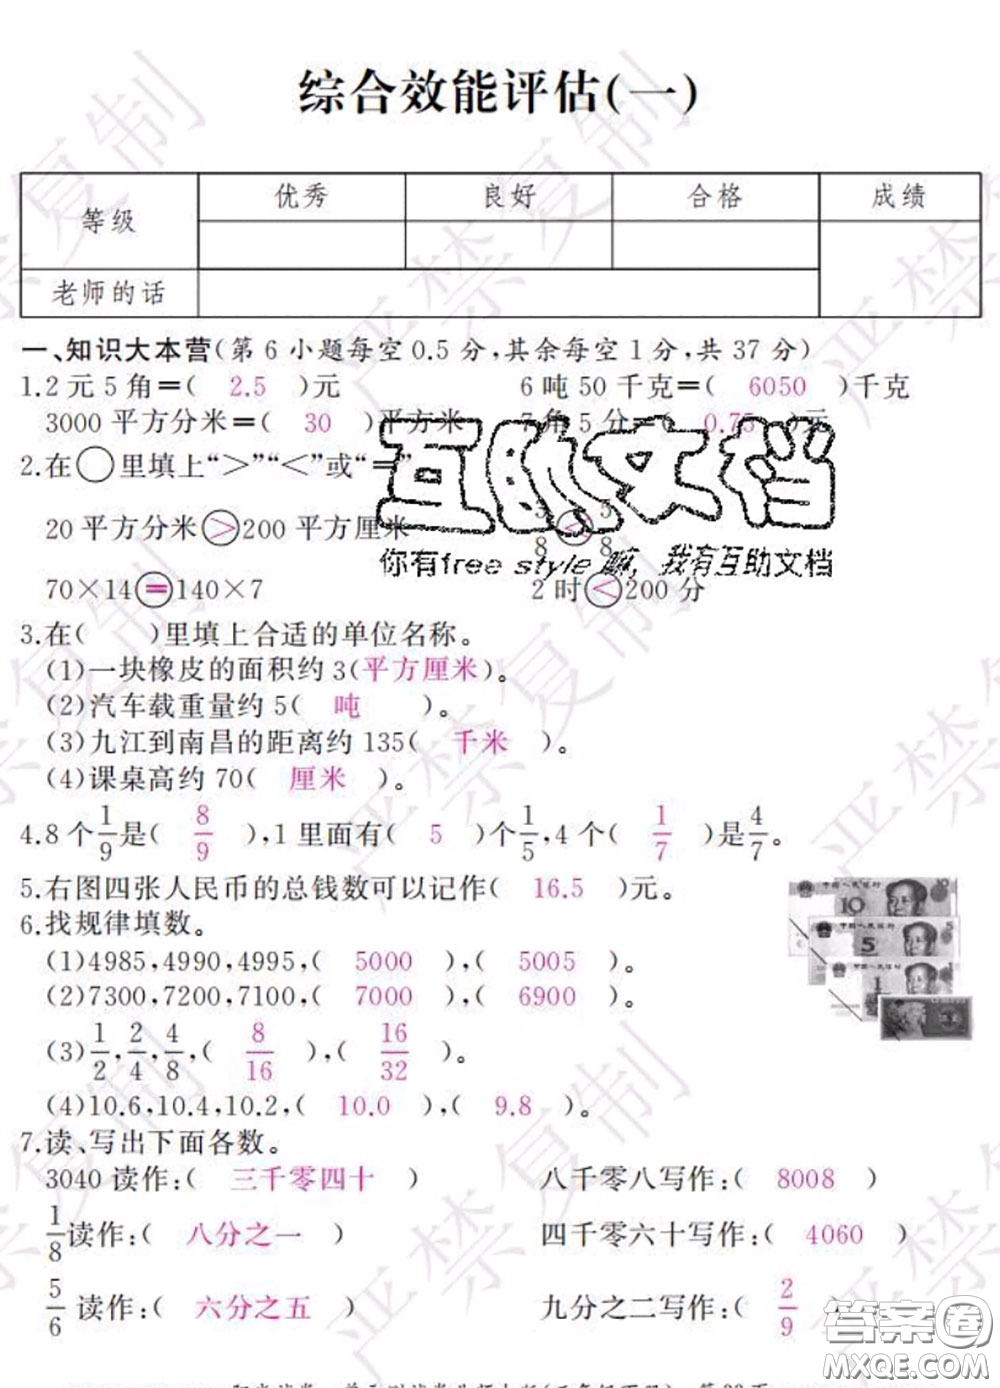 综合效能评估(一)
等级 优秀 良好 合格 成绩
老师的话
一、知识大本营(第 6 小题每空 0.5 分,其余每空 1 分,共 37 分)
1.2 元 5 角=( 2.5 )元 6 吨 50 千克=( 6050 )千克
3000 平方分米=( 30 )平方米 7 角 5 分=( 0.75 )元
2.在○里填上“>”“<”或“=”
20 平方分米>200 平方厘米 3/8<5/8
70×14=140×7 2 时<200 分
互助文档
你有free style嘛,我有互助文档
3.在( )里填上合适的单位名称。
(1)一块橡皮的面积约 3(平方厘米)。
(2)汽车载重量约 5( 吨 )。
(3)九江到南昌的距离约 135( 千米 )。
(4)课桌高约 70( 厘米 )。
4.8 个1/9是( 8/9 ),1 里面有( 5 )个1/5,4 个( 1/7 )是4/7。
5.右图四张人民币的总钱数可以记作( 16.5 )元。
6.找规律填数。
(1)4985,4990,4995,( 5000 ),( 5005 )。
(2)7300,7200,7100,( 7000 ),( 6900 )。
(3)1/2,2/4,4/8,( 8/16 ),( 16/32 )。
(4)10.6,10.4,10.2,( 10.0 ),( 9.8 )。
7.读、写出下面各数。
3040 读作:( 三千零四十 ) 八千零八写作:( 8008 )
1/8读作:( 八分之一 ) 四千零六十写作:( 4060 )
5/6 读作:( 六分之五 ) 九分之二写作:( 2/9 )
答案圈
MXQE.COM
严禁复制